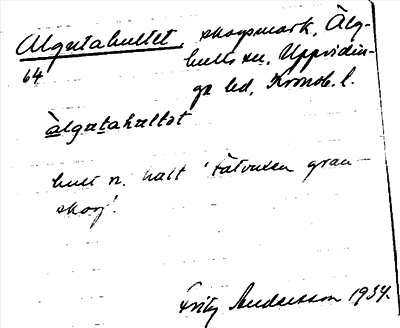 Algutahultet, skogsmark, Älg-
64 hults sn, Uppvidin-
ge hd, Kronob. l.
àlgutahultət
hult n. hält 'tätvuxen gran-
skog'.
Fritz Andersson 1934.